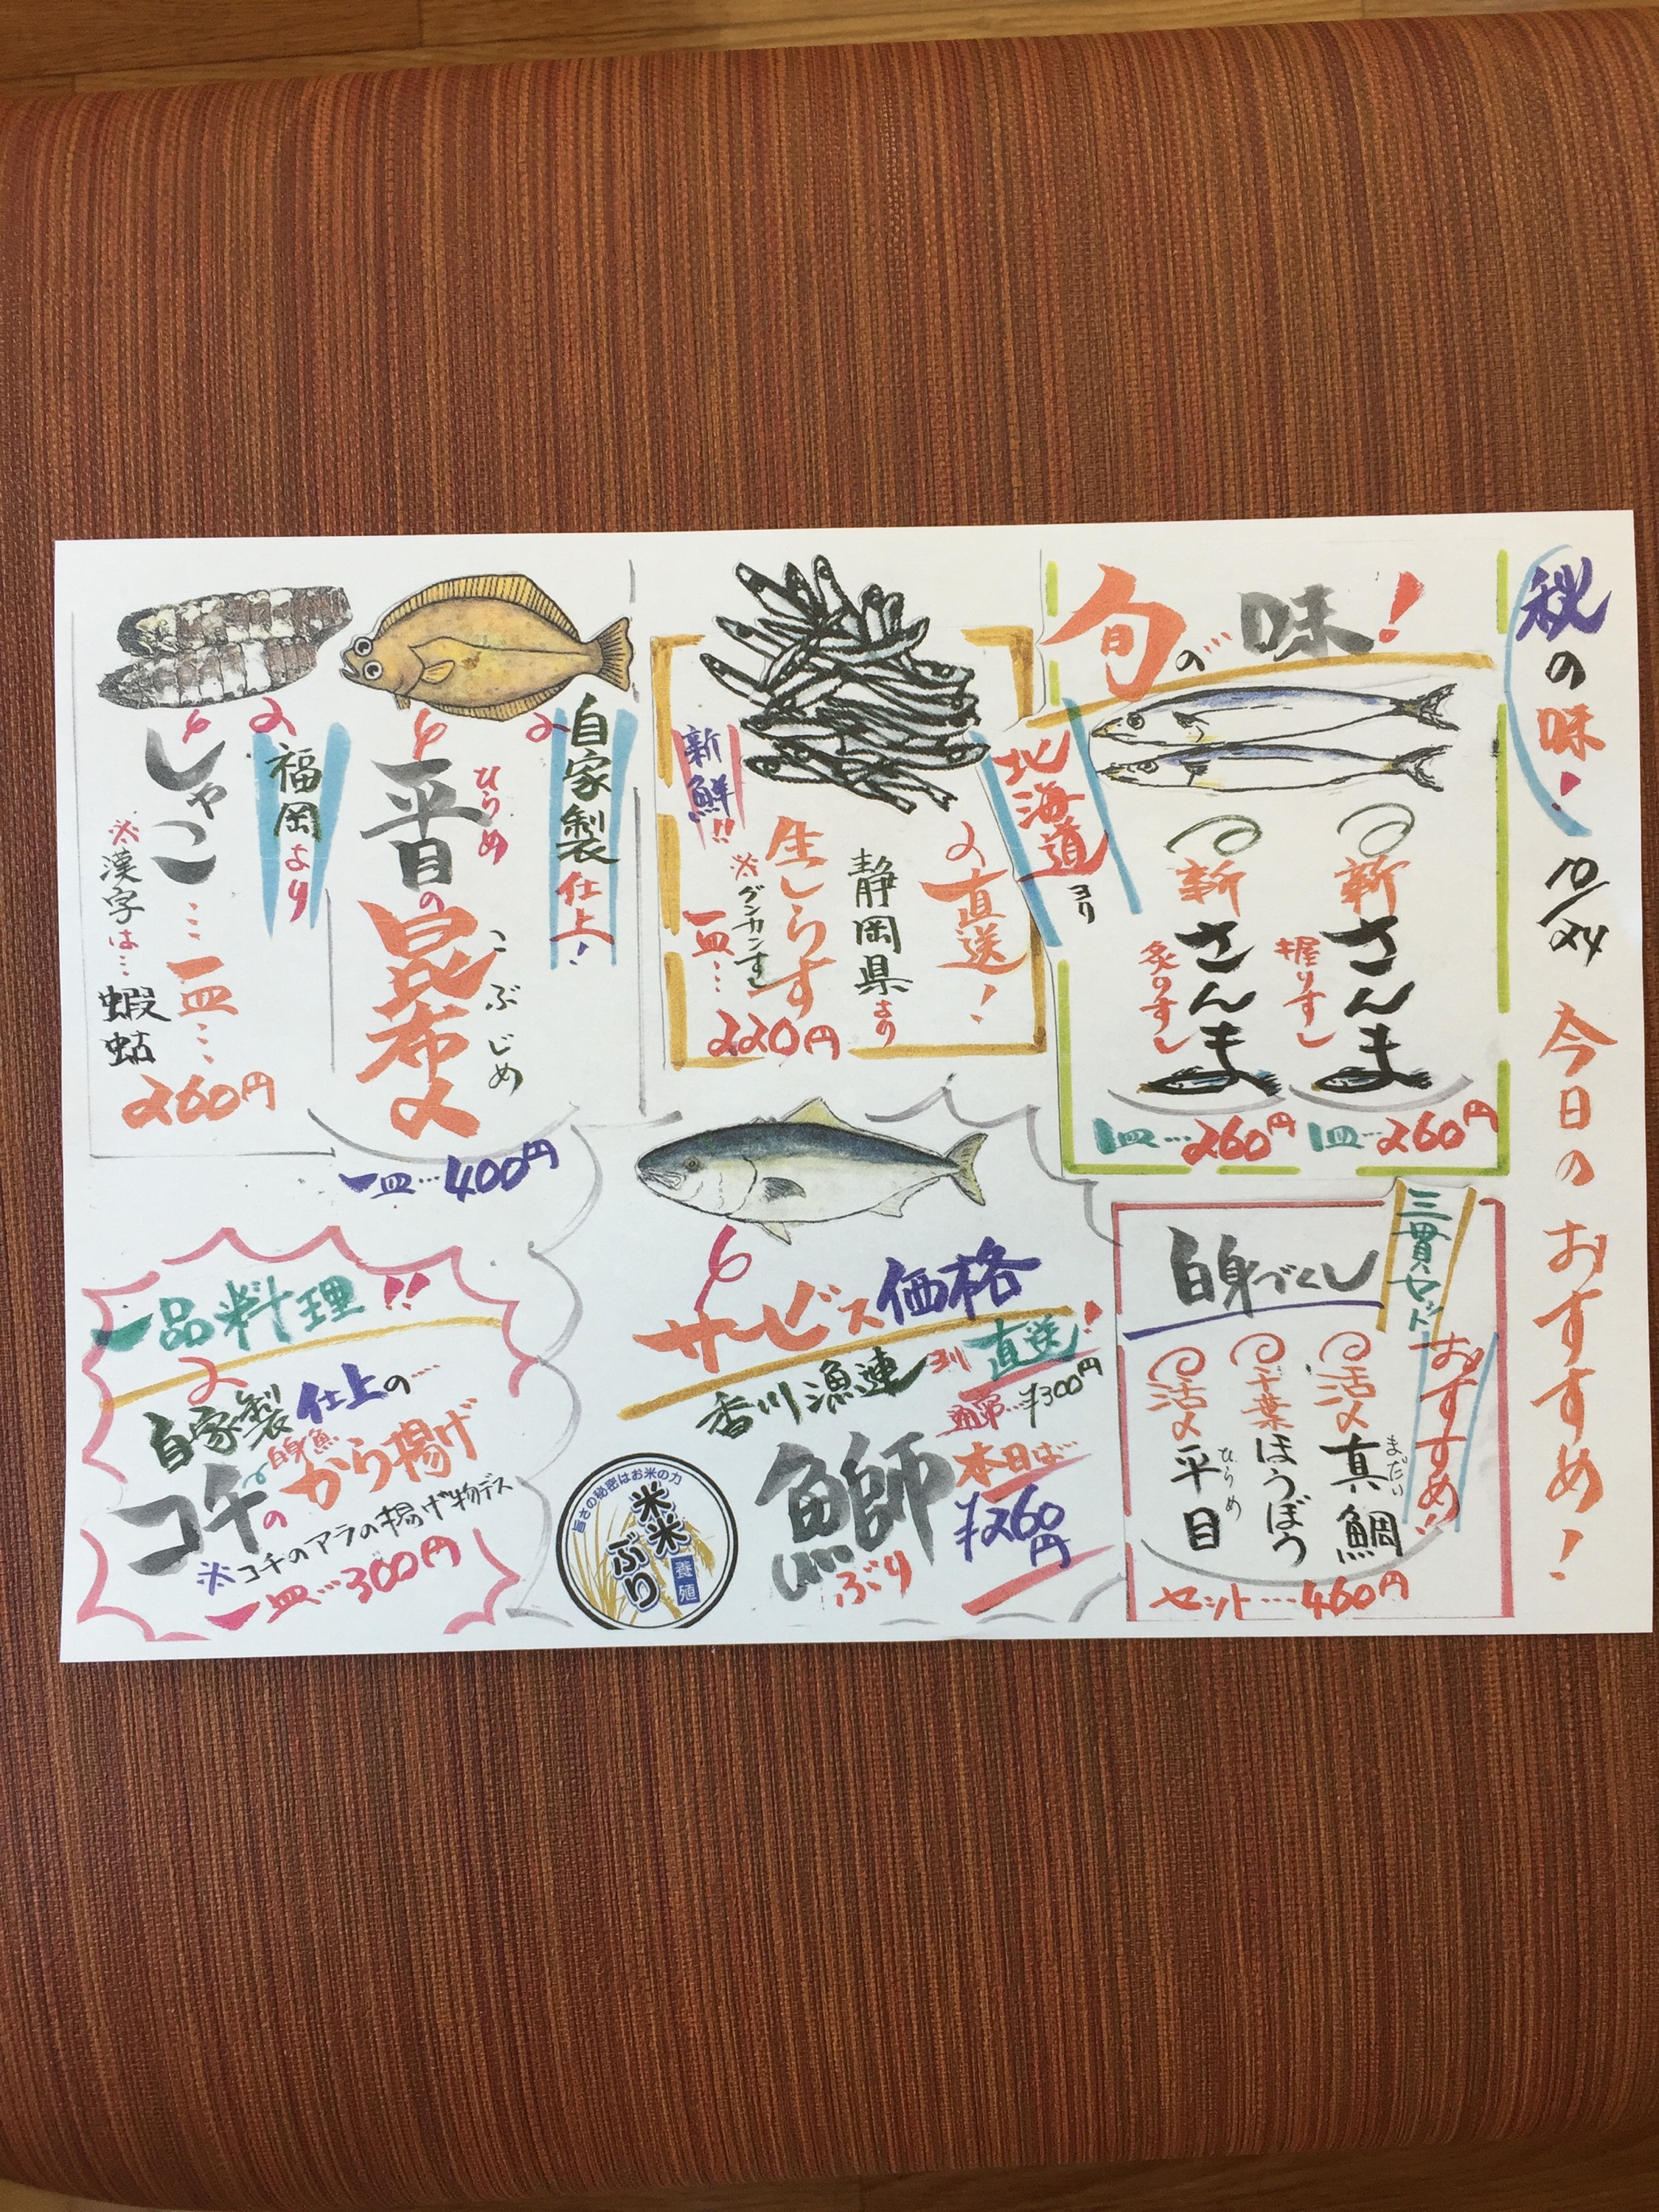 秋の味!
10/24
今日のおすすめ!
旬の味!
北海道ヨリ
新さんま
握りすし
1皿…260円
新さんま
炙りすし
1皿…260円
の直送!
静岡県より
生しらす
※グンカンすし
新鮮!!
一皿…
220円
自家製仕上!
ひらめ
平目の
こぶじめ
昆布〆
一皿…400円
福岡より
しゃこ…一皿…
260円
※漢字は…
蝦蛄
三貫セット
おすすめ!!
白身づくし
活〆真鯛
まだい
千葉ほうぼう
活〆平目
ひらめ
セット…460円
サービス価格!
香川漁連ヨリ直送
通常…¥300円
本日は
¥260円
鰤
ぶり
旨さの秘密はお米の力
米米
ぶり
養殖
一品料理!!
の
自家製仕上の…
白身魚
コチのから揚げ
※コチのアラの揚げ物デス
一皿…300円